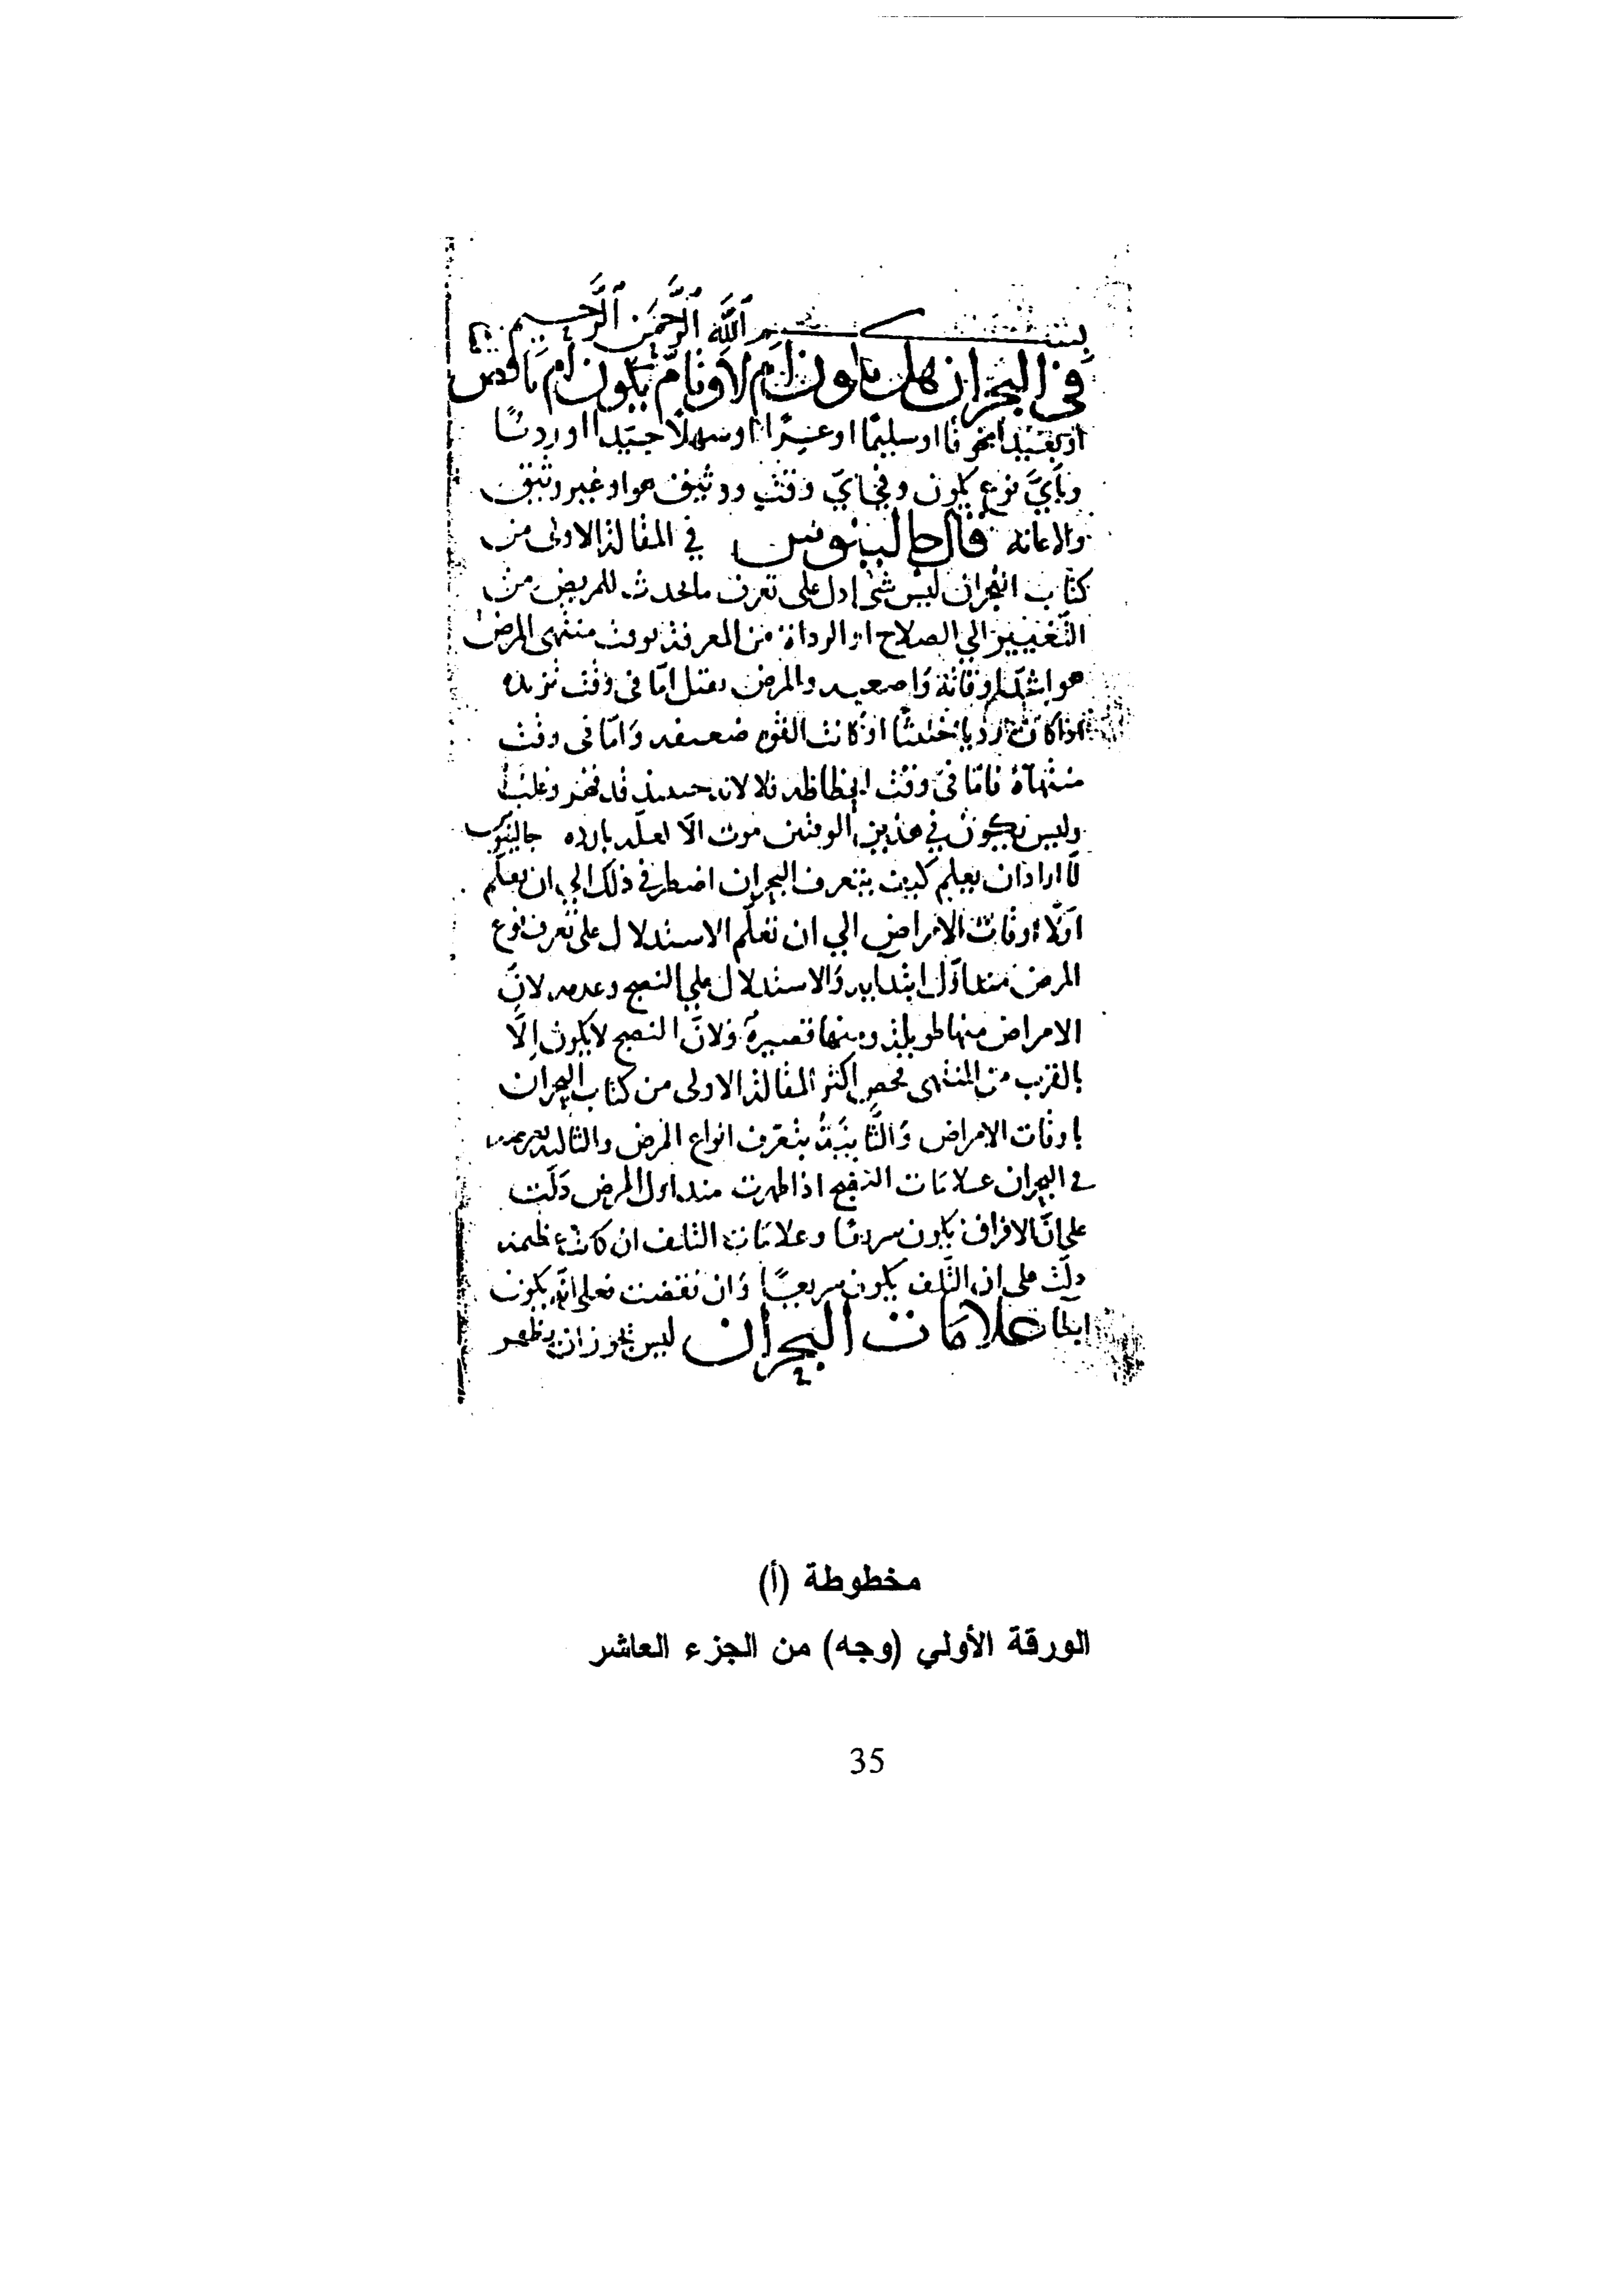 بسم الله الرحمن الرحيم
في البحران هل يكون ام لا وتام يكون ام ناقص
او بعيدا مخوفا او سليما او عسرا او سهلا جيدا او رديا
وبأي نوع يكون وفي اي وقت ووثيق هو او غير وثيق
والاعانة قال جالينوس في المقالة الاولى من
كتاب البحران ليس شي ادل على تعرف ما يحدث للمريض من
التغيير الي الصلاح او الرداة من المعرفة بوقت منتهى المرض
هو اشد اوقاته واصعبه والمرض يقتل اما في وقت تزيده
اذا كان رديا خبيثا او كانت القوة ضعيفه واما في وقت
منتهاه فاما في وقت انحطاطه فلا لانه حينيذ قد قهر وغلب
وليس يكون في هذين الوقتين موت الا لعلة بارده جالينوس
لما اراد ان يعلم كيف يتعرف البحران اضطر في ذلك الي ان يعلم
اولا اوقات الامراض الي ان تعلم الاستدلال على تعرف نوع
المرض منذ اول ابتدايه والاستدلال علي النضج وعدمه لان
الامراض منها طويلة ومنها قصيرة ولان النضج لا يكون الا
بالقرب من المنتهى فخص اكثر المقالة الاولى من كتاب البحران
باوقات الامراض والثانية بتعرف انواع المرض والثالثة
في البحران علامات النضج اذا ظهرت منذ اول المرض دلت
على ان الافراق يكون سريعا وعلامات التلف ان كانت عظيمة
دلت على ان التلف يكون سريعا وان نقصت فعلى انه يكون
ابطا علامات البحران ليس يجوز ان يظهر
مخطوطة (أ)
الورقة الأولي (وجه) من الجزء العاشر
35